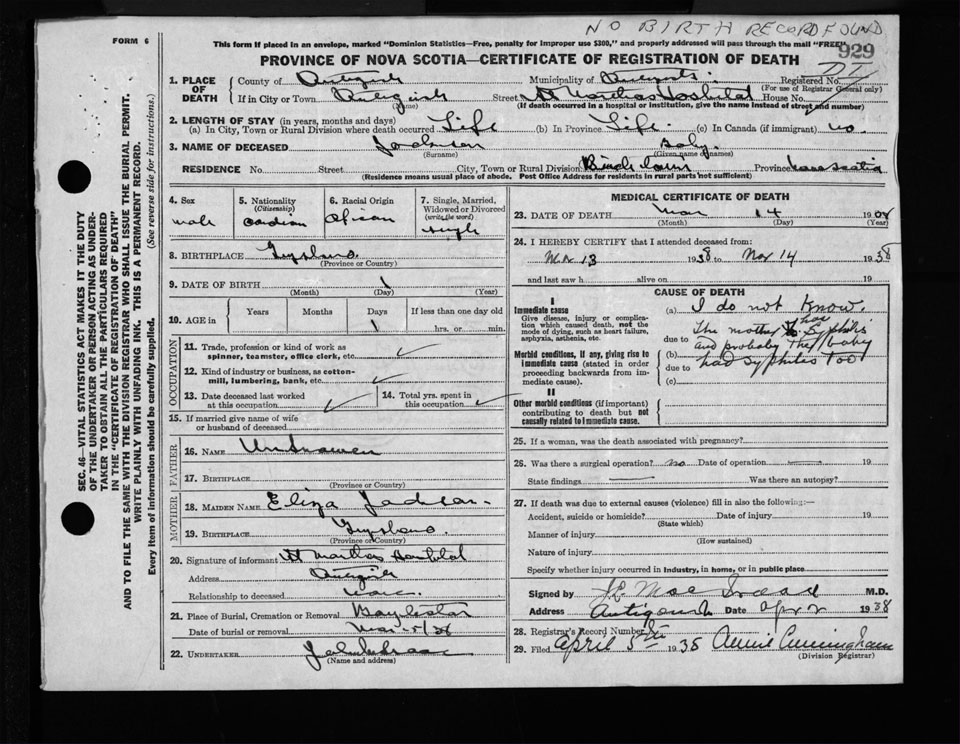 NO BIRTH RECORD FOUND
FORM 6
This form if placed in an envelope, marked "Dominion Statistics—Free, penalty for improper use $300," and properly addressed will pass through the mail "FREE"
929
PROVINCE OF NOVA SCOTIA—CERTIFICATE OF REGISTRATION OF DEATH
1. PLACE OF DEATH
County of Antigonish Municipality of Antigonish Registered No.
(For use of Registrar General only)
If in City or Town Antigonish Street St Marthas Hospital House No.
(If death occurred in a hospital or institution, give the name instead of street and number)
2. LENGTH OF STAY (in years, months and days)
(a) In City, Town or Rural Division where death occurred Life (b) In Province Life (c) In Canada (if immigrant) no.
3. NAME OF DECEASED Jackson Baby.
(Surname) (Given name or names)
RESIDENCE No. Street City, Town or Rural Division Province Nova Scotia
(Residence means usual place of abode. Post Office Address for residents in rural parts not sufficient)
4. Sex
male
5. Nationality
(Citizenship)
Canadian
6. Racial Origin
African
7. Single, Married, Widowed or Divorced
(write the word)
Single
8. BIRTHPLACE Guysboro
(Province or Country)
9. DATE OF BIRTH 1
(Month) (Day) (Year)
10. AGE in
Years Months Days If less than one day old
1 hrs. or min.
OCCUPATION
11. Trade, profession or kind of work as spinner, teamster, office clerk, etc. ✓
12. Kind of industry or business, as cotton-mill, lumbering, bank, etc. ✓
13. Date deceased last worked at this occupation ✓
14. Total yrs. spent in this occupation ✓
15. If married give name of wife or husband of deceased
FATHER
16. NAME Unknown
17. BIRTHPLACE
(Province or Country)
MOTHER
18. MAIDEN NAME Eliza Jackson.
19. BIRTHPLACE Guysboro
(Province or Country)
20. Signature of informant St Marthas Hospital
Address Antigonish
Relationship to deceased none
21. Place of Burial, Cremation or Removal
Date of burial or removal Mar 15/38
22. UNDERTAKER
(Name and address)
MEDICAL CERTIFICATE OF DEATH
23. DATE OF DEATH Mar 14 1938
(Month) (Day) (Year)
24. I HEREBY CERTIFY that I attended deceased from:
Mar 13 1938 to Mar 14 1938
and last saw h alive on 19
CAUSE OF DEATH
I
Immediate cause
Give disease, injury or complication which caused death, not the mode of dying, such as heart failure, asphyxia, asthenia, etc.
Morbid conditions, if any, giving rise to immediate cause (stated in order proceeding backwards from immediate cause).
II
Other morbid conditions (if important) contributing to death but not causally related to immediate cause.
(a) I do not know.
due to The mother has Syphilis
(b) and probably the baby
due to had syphilis too
(c)
25. If a woman, was the death associated with pregnancy?
26. Was there a surgical operation? no Date of operation
State findings Was there an autopsy?
27. If death was due to external causes (violence) fill in also the following:—
Accident, suicide or homicide? Date of injury 19
(State which)
Manner of injury
(How sustained)
Nature of injury
Specify whether injury occurred in Industry, in home, or in public place
Signed by M.D.
Address Antigonish Date Apr 2 1938
28. Registrar's Record Number
29. Filed April 5th 1938 Annie Cunningham
(Division Registrar)
SEC. 46—VITAL STATISTICS ACT MAKES IT THE DUTY
OF THE UNDERTAKER OR PERSON ACTING AS UNDER-
TAKER TO OBTAIN ALL THE PARTICULARS REQUIRED
IN THE "CERTIFICATE OF REGISTRATION OF DEATH"
AND TO FILE THE SAME WITH THE DIVISION REGISTRAR WHO SHALL ISSUE THE BURIAL PERMIT.
WRITE PLAINLY WITH UNFADING INK. THIS IS A PERMANENT RECORD.
Every item of information should be carefully supplied. (See reverse side for instructions.)